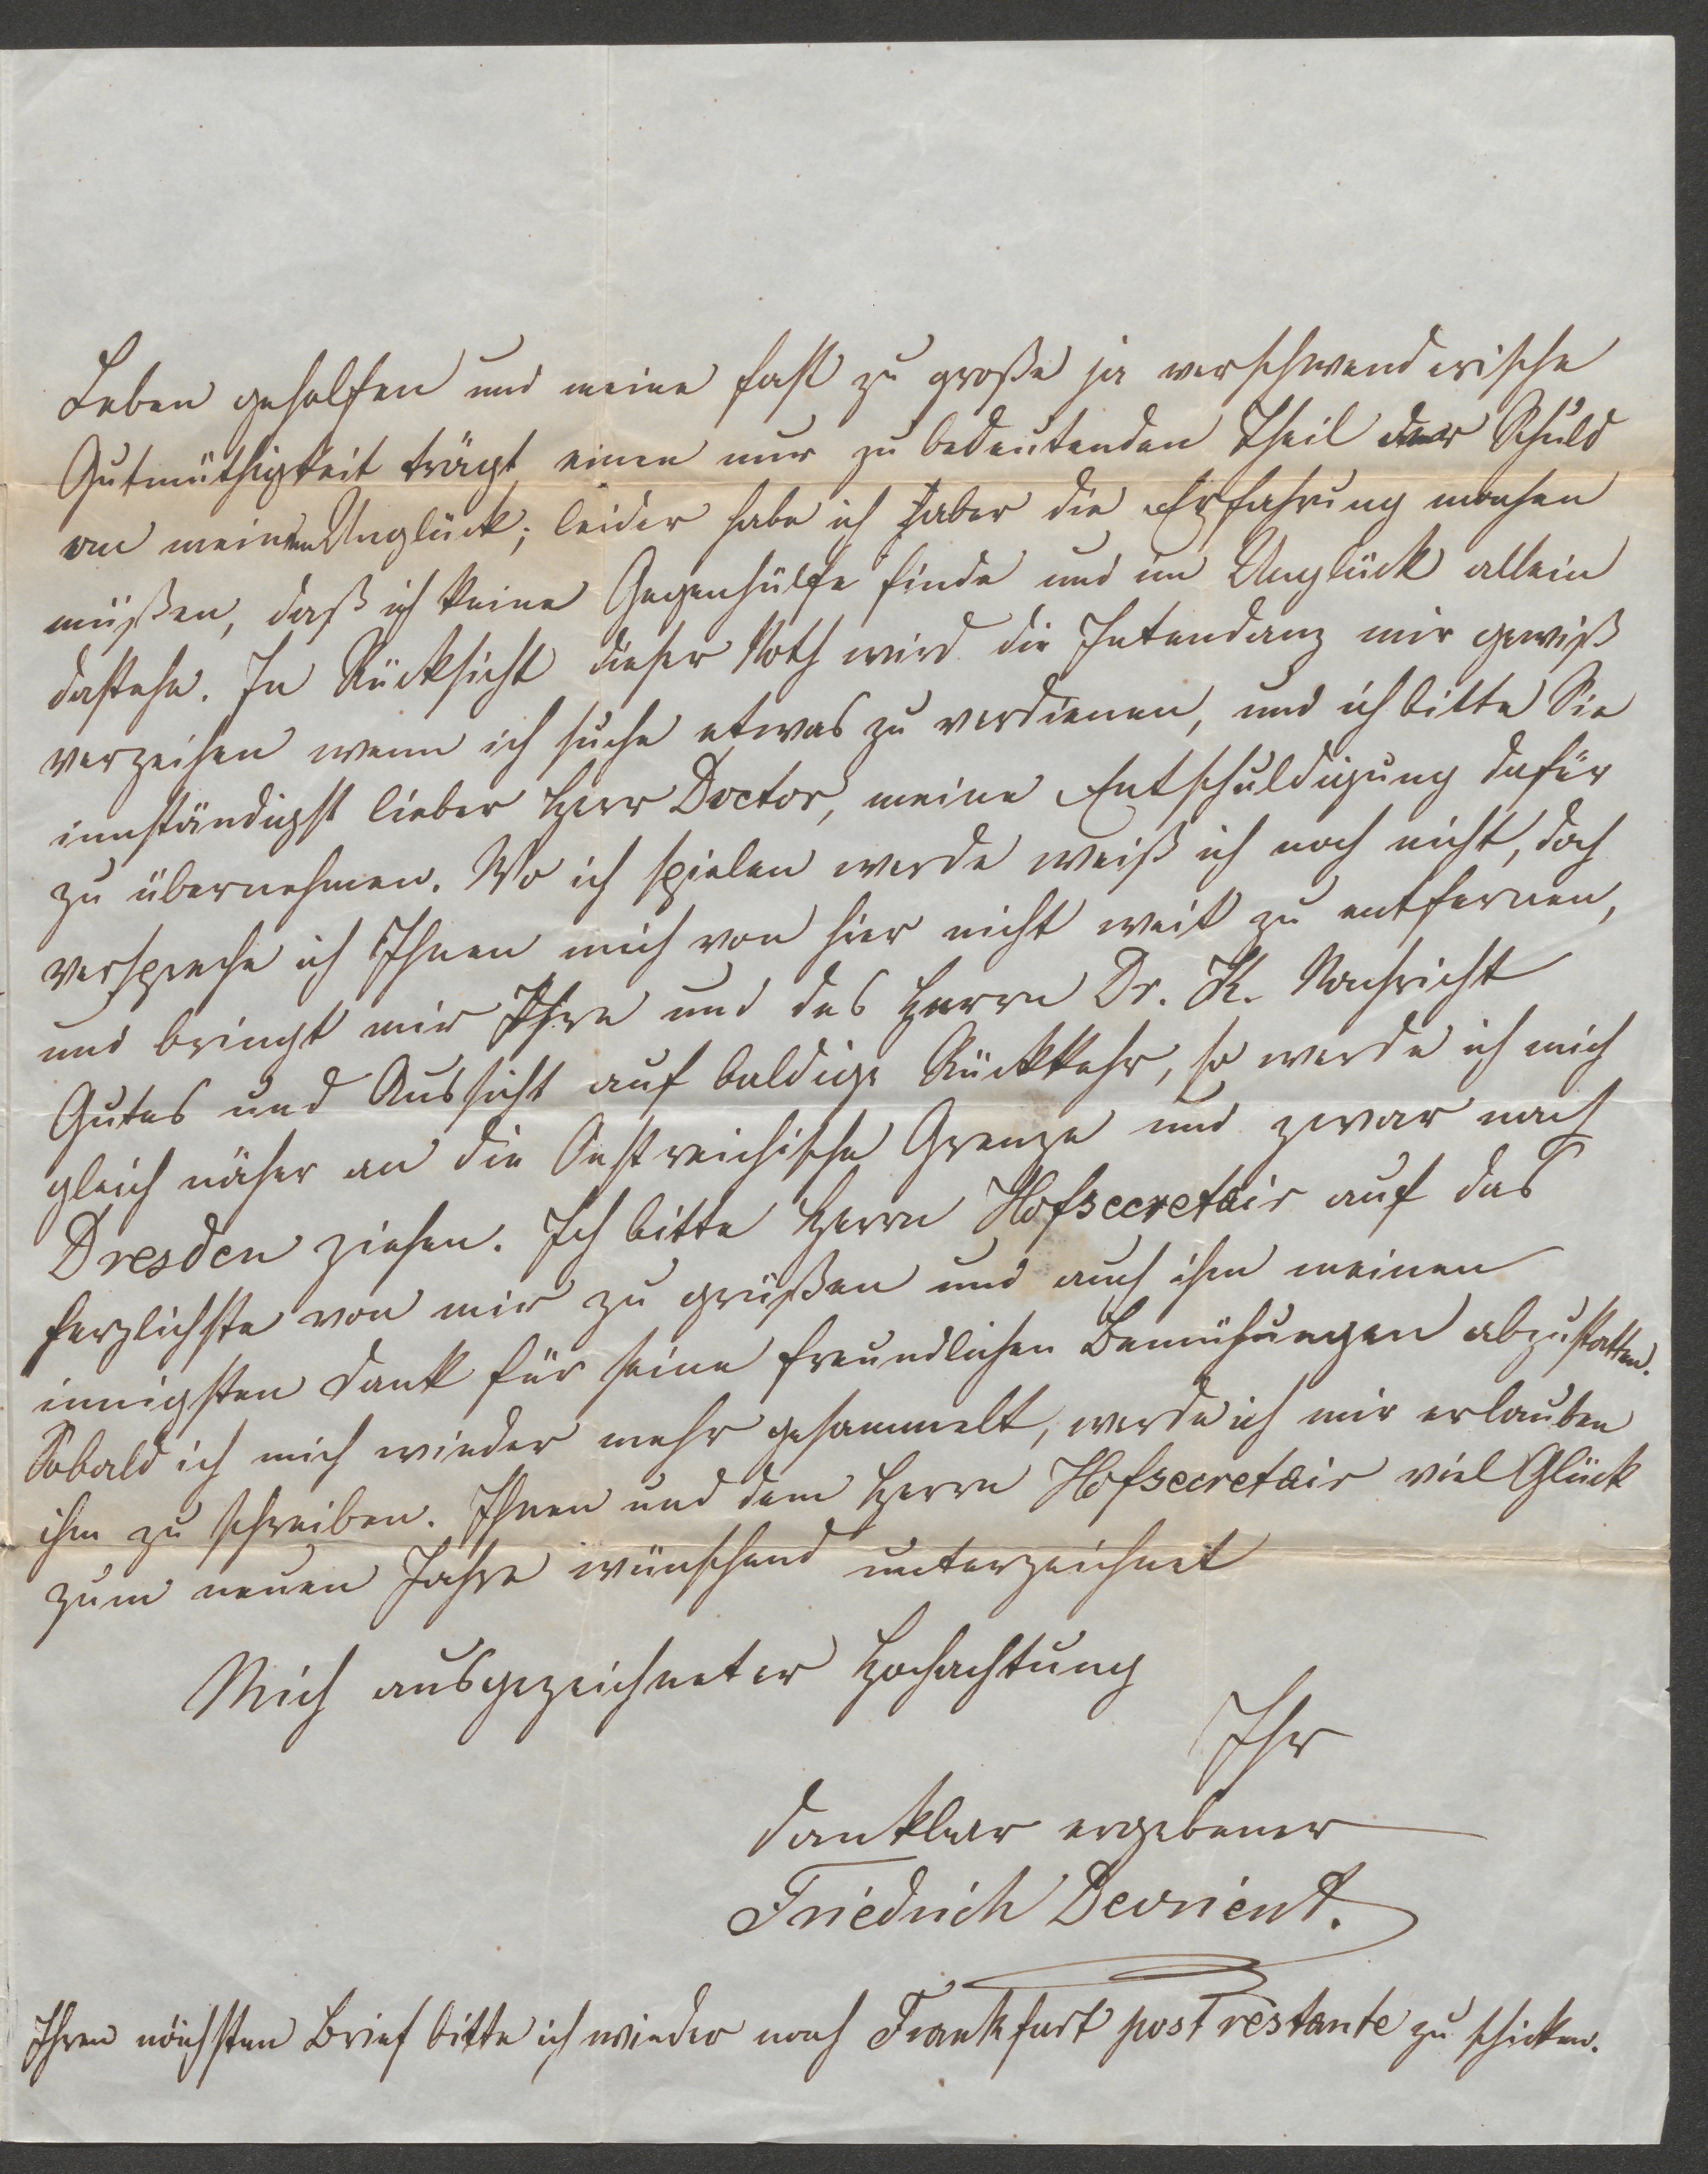 Leben geholfen und meine fast zu große ja verschwenderische
Gutmüthigkeit trägt einen nur zu bedeutenden Theil der Schuld
an meinem Unglück; leider habe ich aber die Erfahrung machen
müßen, daß ich keine Gegenhülfe finde und im Unglück allein
dastehe. In Rücksicht dieser Noth wird die Intendanz mir gewiß
verzeihen wenn ich suche etwas zu verdienen, und ich bitte Sie
innständigst lieber Herr Doctor, meine Entschuldigung dafür
zu übernehmen. Wo ich spielen werde weiß ich noch nicht, doch
verspreche ich Ihnen mich von hier nicht weit zu entfernen,
und bringt mir Ihre und des Herrn Dr. K. Nachricht
Gutes und Aussicht auf baldige Rückkehr, so werde ich mich
gleich näher an die Oestreichische Grenze und zwar nach
Dresden ziehen. Ich bitte Herrn Hofsecretair auf das
herzlichste von mir zu grüßen und auch ihm meinen
innigsten Dank für seine freundlichen Bemühungen abzustatten.
Sobald ich mich wieder mehr gesammelt, werde ich mir erlauben
ihm zu schreiben. Ihnen und dem Herrn Hofsecretair viel Glück
zum neuen Jahre wünschend unterzeichnet
Mich ausgezeichneter Hochachtung
Ihr
dankbar ergebener
Friedrich Devrient.
Ihren nächsten Brief bitte ich wieder nach Frankfurt post restante zu schicken.